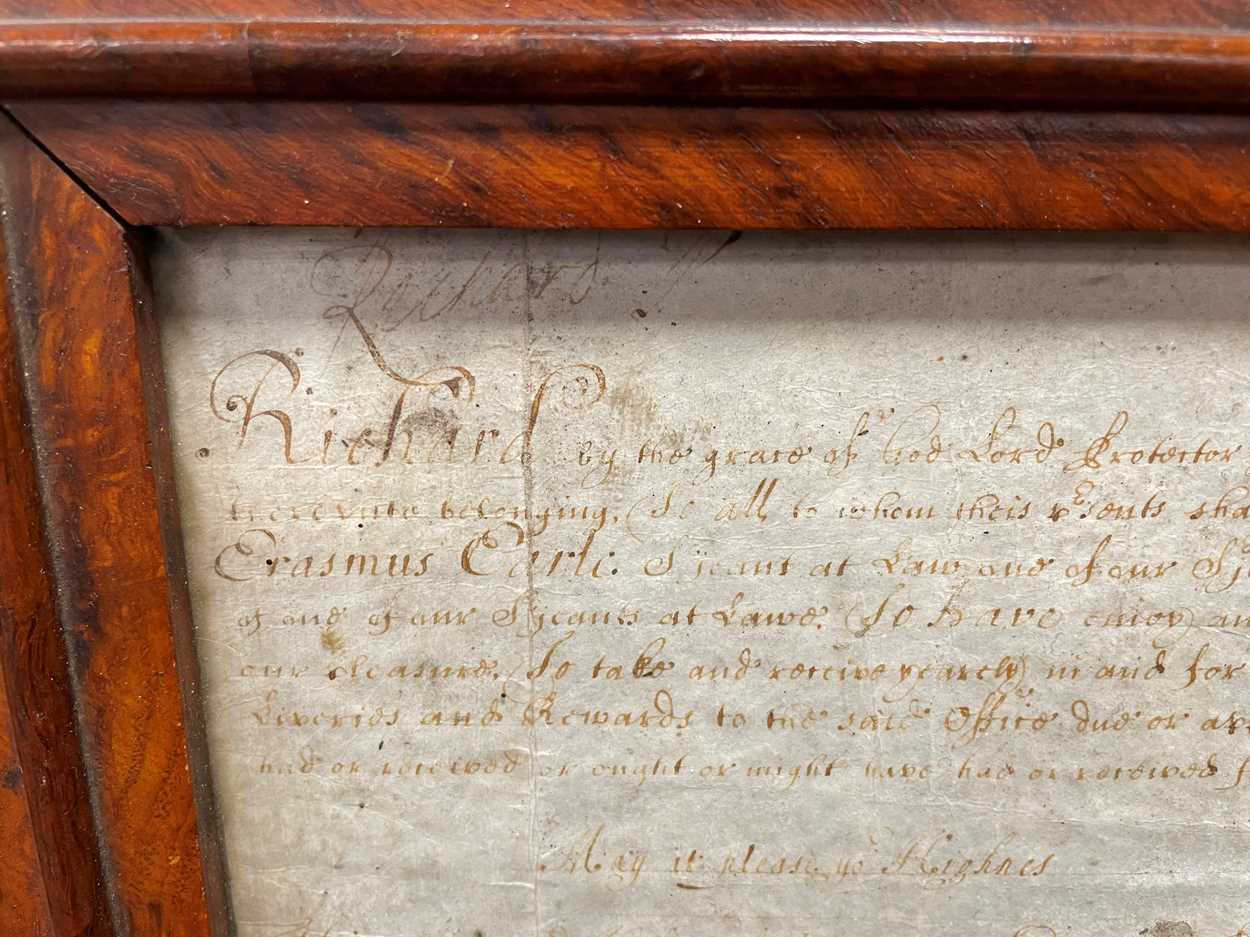 Richard P
Richard by the grace of God Lord Protector
thereunto belonging, To all to whom theis p'sents sha
Erasmus Earle Sjeant at Law one of our Sj
of one of our Sjeants at Lawe. To have enioy an
our pleasure. To take and receive yearely in and for
Liveries and Rewards to the said Office due or
had or received or ought or might have had or received f
May it please yor Highnes